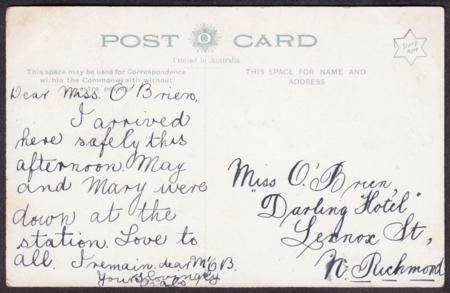 POST CARD
Printed in Australia
Stamp Here
This space may be used for Correspondence
within the Commonwealth without
extra
THIS SPACE FOR NAME AND
ADDRESS
Dear Miss. O'Brien,
I arrived
here safely this
afternoon. May
and Mary were
down at the
station. Love to
all. I remain, dear
Yours lovingly
Miss O'Brien,
"Darling Hotel"
Lennox St,
N. Richmond